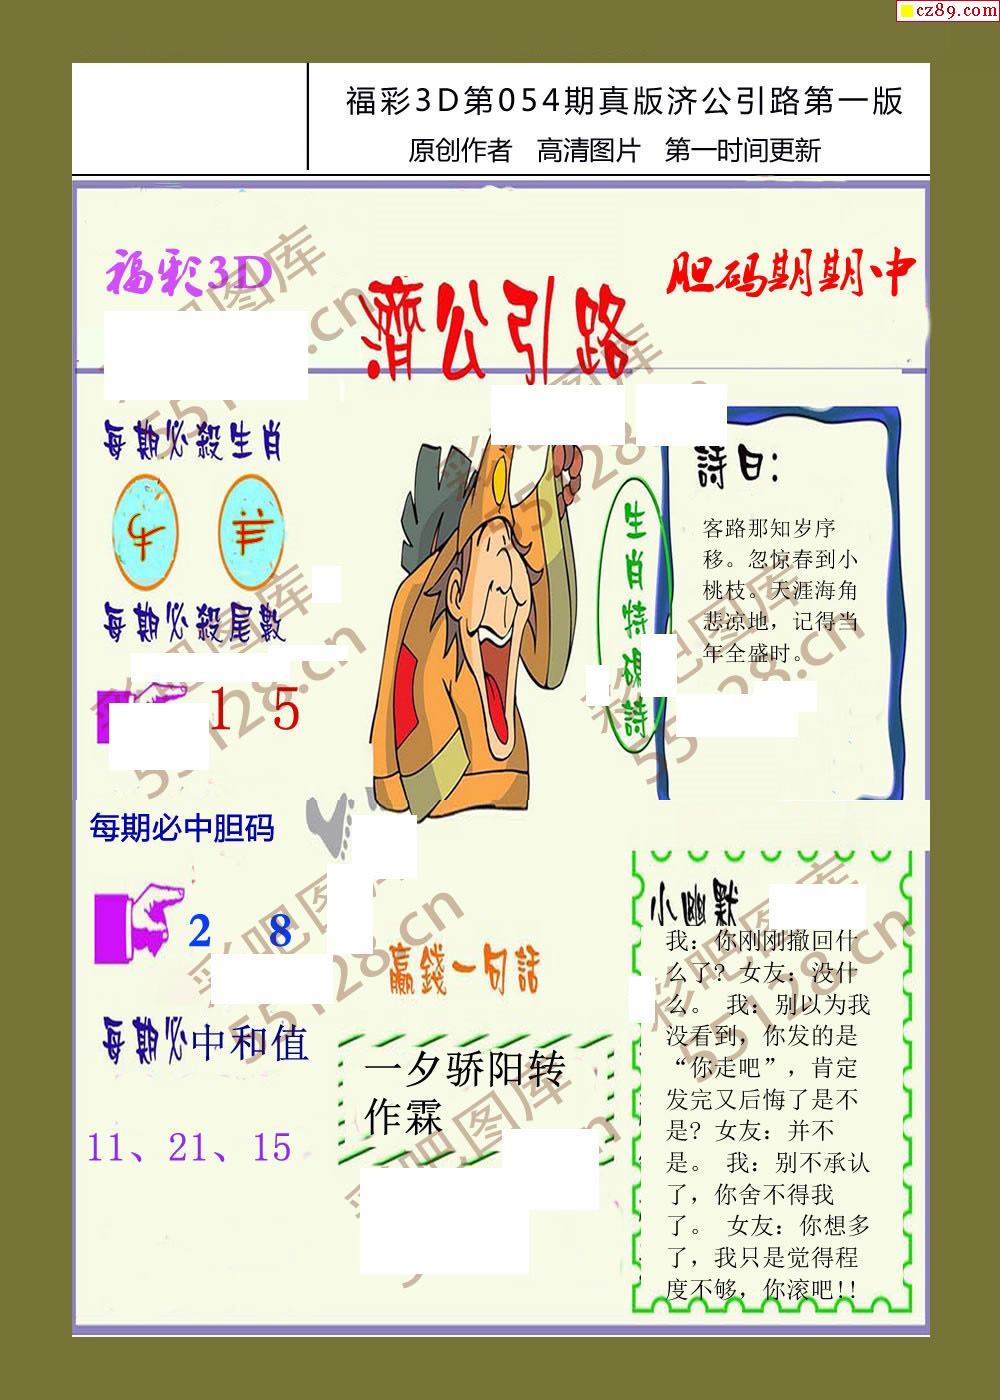 cz89.com
福彩3D第054期真版济公引路第一版
原创作者 高清图片 第一时间更新
福彩3D
胆码期期中
濟公引路
每期必殺生肖
牛 羊
每期必殺尾數
1 5
每期必中胆码
2 8
每期必中和值
11、21、15
生肖特碼詩
詩曰:
客路那知岁序
移。忽惊春到小
桃枝。天涯海角
悲凉地，记得当
年全盛时。
贏錢一句話
一夕骄阳转
作霖
小幽默
我：你刚刚撤回什
么了? 女友：没什
么。 我：别以为我
没看到，你发的是
“你走吧”，肯定
发完又后悔了是不
是? 女友：并不
是。 我：别不承认
了，你舍不得我
了。 女友：你想多
了，我只是觉得程
度不够，你滚吧!!
彩吧图库
55128.cn